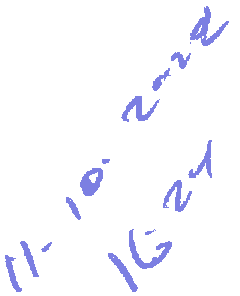 11-10-2022
16:21